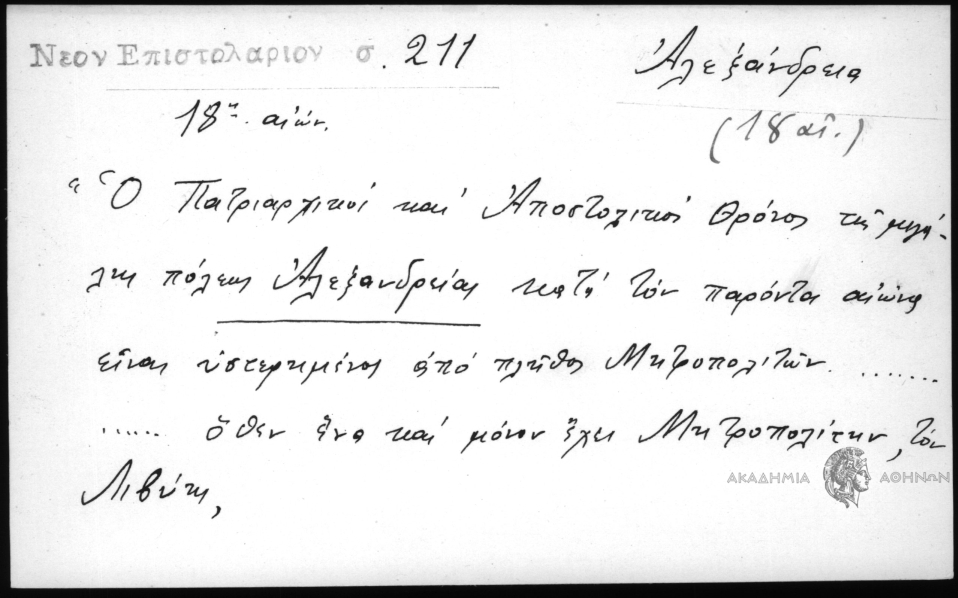 Νεον Επιστολαριον σ. 211
Ἀλεξάνδρεια
18ος αἰών.
(18 αἰ.)
"Ὁ Πατριαρχικός καί Ἀποστολικός Θρόνος τῆς μεγά-
λης πόλεως Ἀλεξανδρείας κατά τόν παρόντα αἰῶνα
εἶναι ὑστερημένος ἀπό πλῆθος Μητροπολιτῶν ........
...... ὅθεν ἕνα καί μόνον ἔχει Μητροπολίτην, τόν
Λιβύης,
ΑΚΑΔΗΜΙΑ ΑΘΗΝΩΝ